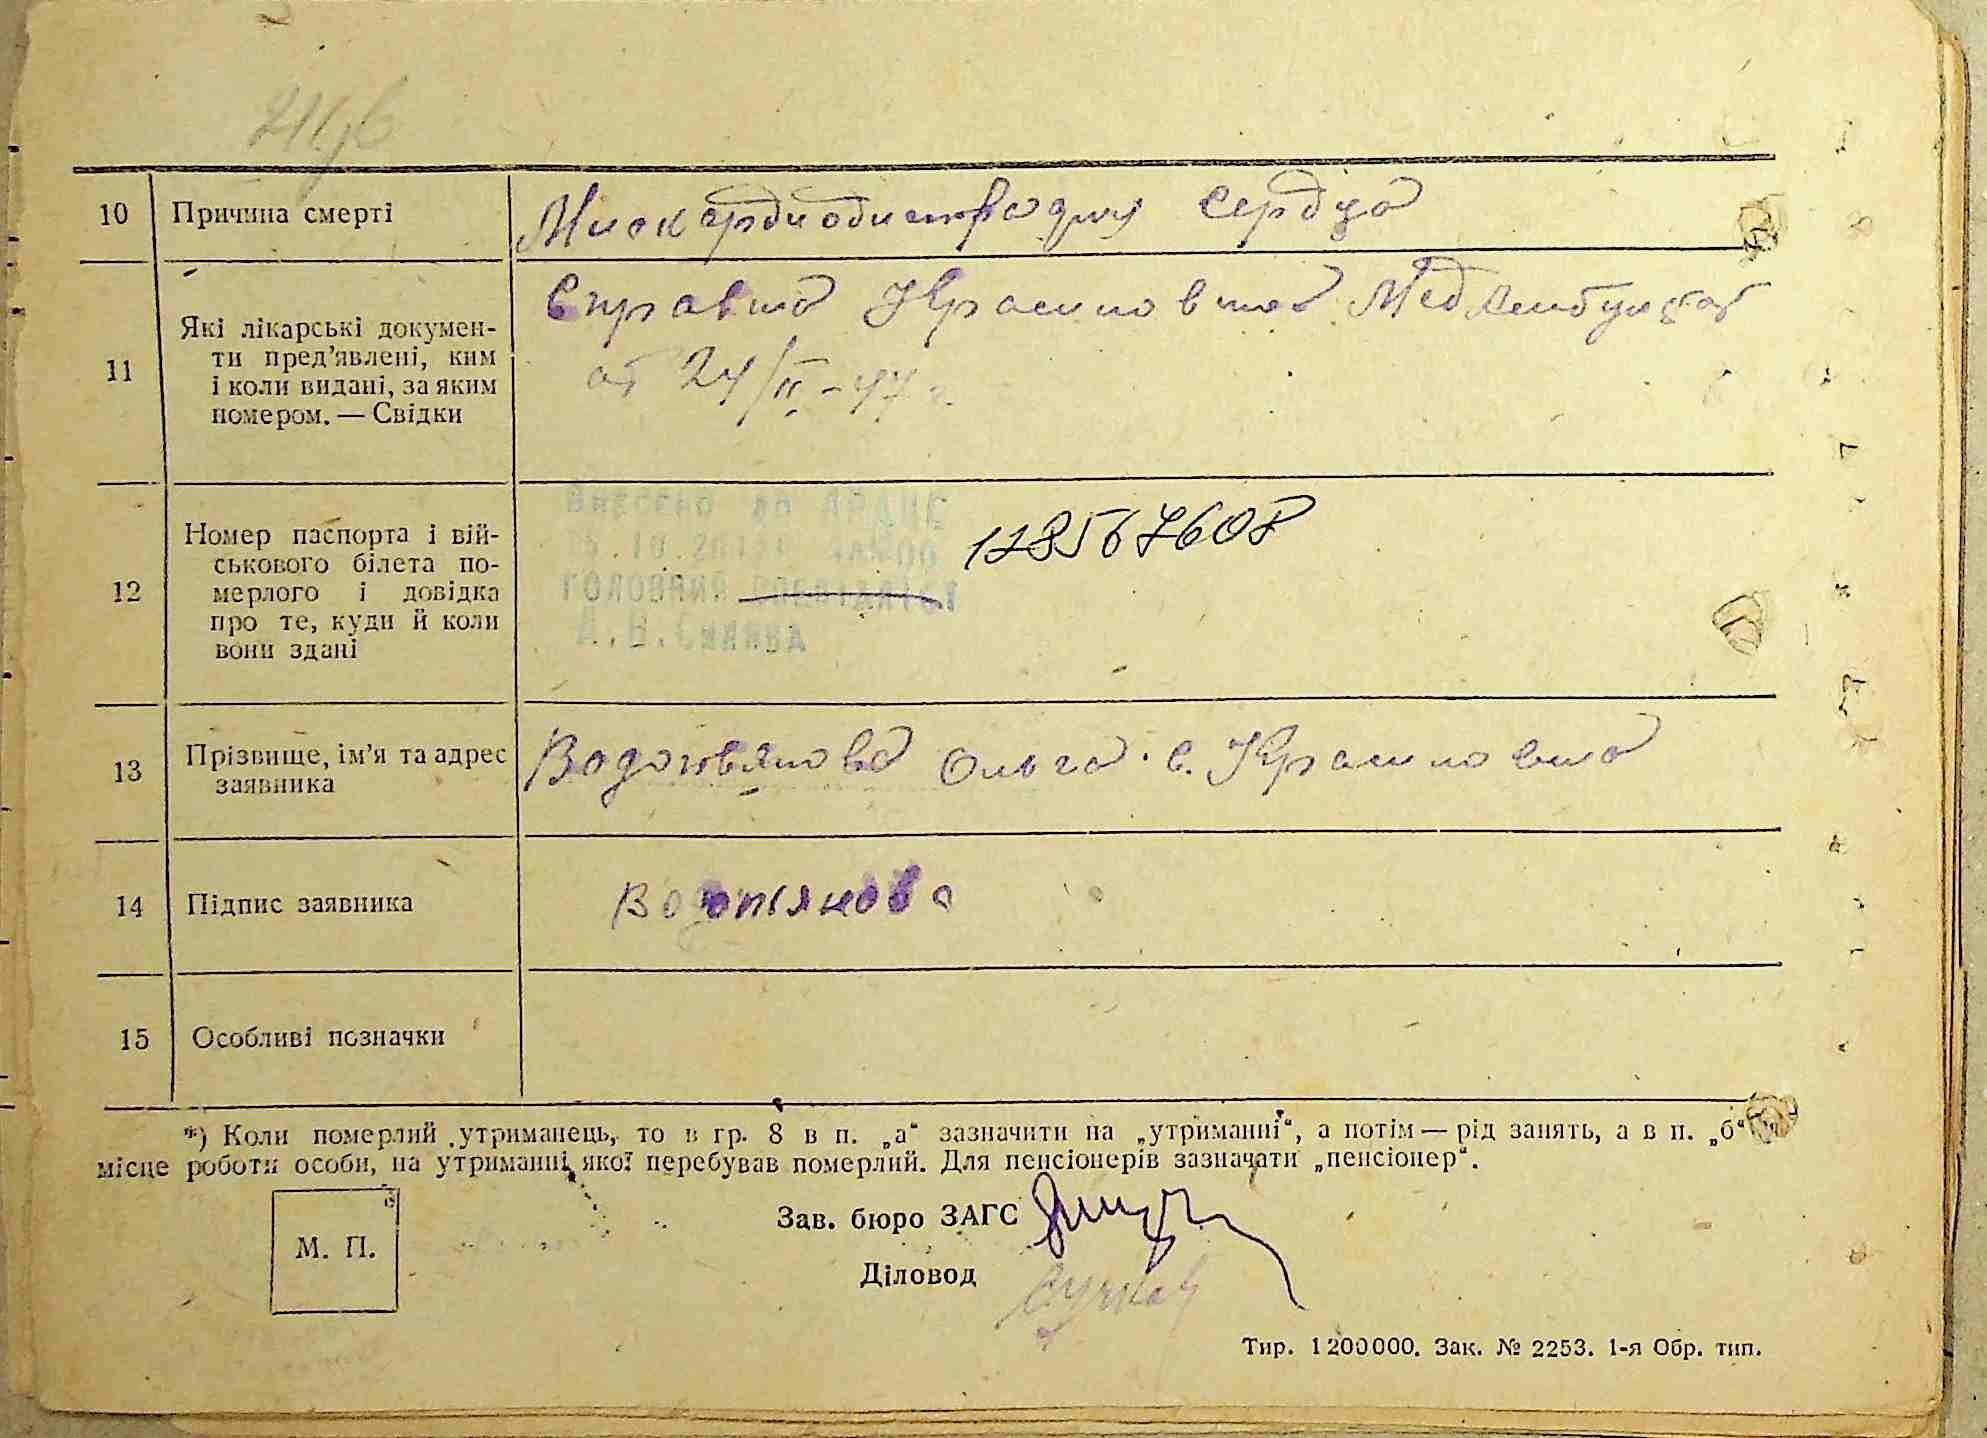 10 Причина смерті
Миокардиодистрофия сердца
11 Які лікарські докумен-
ти пред’явлені, ким
і коли видані, за яким
номером. — Свідки
Справка
от 24/II-47 г.
12 Номер паспорта і вій-
ськового білета по-
мерлого і довідка
про те, куди й коли
вони здані
Внесено до
головний спеціаліст
13 Прізвище, ім’я та адрес
заявника
Водопянова Ольга с.
14 Підпис заявника
Водопянова
15 Особливі позначки
*) Коли померлий утриманець, то в гр. 8 в п. „а“ зазначити на „утриманні“, а потім — рід занять, а в п. „б“
місце роботи особи, на утриманні якої перебував померлий. Для пенсіонерів зазначати „пенсіонер“.
М. П.
Зав. бюро ЗАГС
Діловод
Тир. 1200000. Зак. № 2253. 1-я Обр. тип.